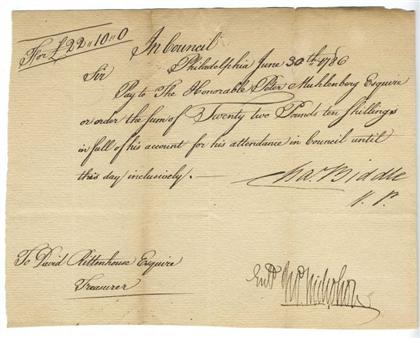 For £22"10"0
In Council
Philadelphia June 30th 1786
Sir
Pay to The Honorable Peter Muhlenberg Esquire
or order the sum of Twenty two Pounds ten shillings
in full of his account for his attendance in Council until
this day inclusively. —
Chas. Biddle
V. P.
To David Rittenhouse Esquire
Treasurer
Entd Jno Nicholson